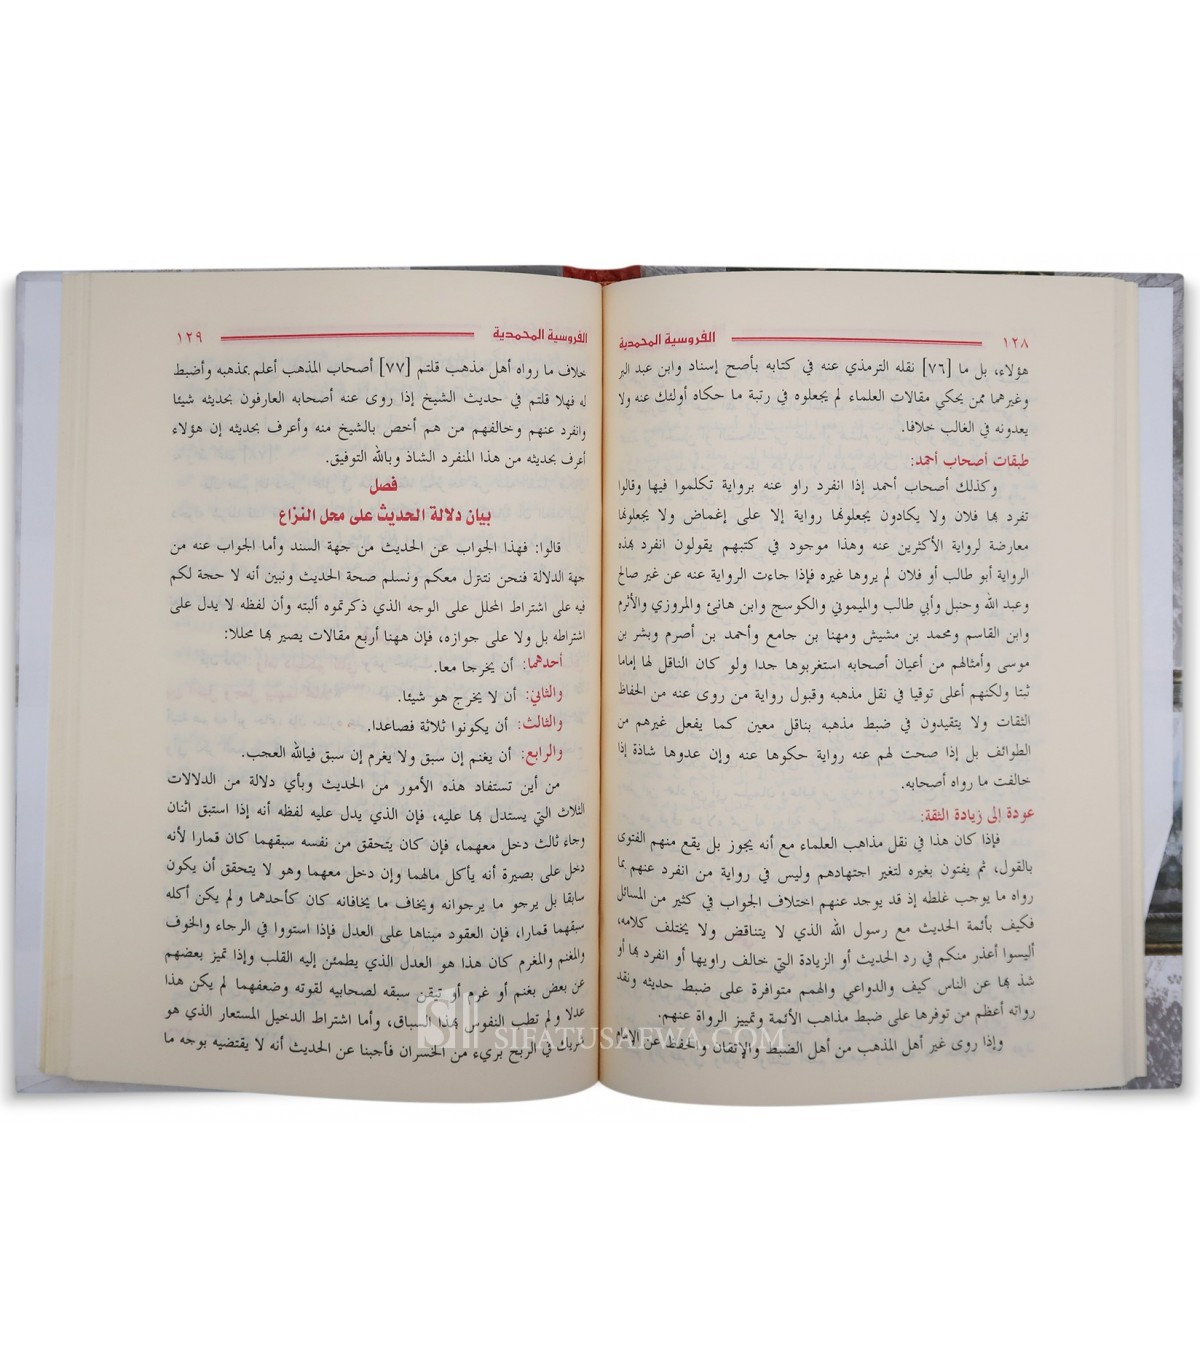 الفروسية المحمدية ١٢٨
هؤلاء، بل ما [٧٦] نقله الترمذي عنه في كتابه بأصح إسناد وابن عبد البر
وغيرهما ممن يحكي مقالات العلماء لم يجعلوه في رتبة ما حكاه أولئك عنه ولا
يعدونه في الغالب خلافا.
طبقات أصحاب أحمد:
وكذلك أصحاب أحمد إذا انفرد راو عنه برواية تكلموا فيها وقالوا
تفرد بها فلان ولا يكادون يجعلونها رواية إلا على إغماض ولا يجعلونها
معارضة لرواية الأكثرين عنه وهذا موجود في كتبهم يقولون انفرد بهذه
الرواية أبو طالب أو فلان لم يروها غيره فإذا جاءت الرواية عنه عن غير صالح
وعبد الله وحنبل وأبي طالب والميموني والكوسج وابن هانئ والمروزي والأثرم
وابن القاسم ومحمد بن مشيش ومهنا بن جامع وأحمد بن أصرم وبشر بن
موسى وأمثالهم من أعيان أصحابه استغربوها جدا ولو كان الناقل لها إماما
ثبتا ولكنهم أعلى توقيا في نقل مذهبه وقبول رواية من روى عنه من الحفاظ
الثقات ولا يتقيدون في ضبط مذهبه بناقل معين كما يفعل غيرهم من
الطوائف بل إذا صحت لهم عنه رواية حكوها عنه وإن عدوها شاذة إذا
خالفت ما رواه أصحابه.
عودة إلى زيادة الثقة:
فإذا كان هذا في نقل مذاهب العلماء مع أنه يجوز بل يقع منهم الفتوى
بالقول، ثم يفتون بغيره لتغير اجتهادهم وليس في رواية من انفرد عنهم بما
رواه ما يوجب غلطه إذ قد يوجد عنهم اختلاف الجواب في كثير من المسائل
فكيف بأئمة الحديث مع رسول الله الذي لا يتناقض ولا يختلف كلامه،
أليسوا أعذر منكم في رد الحديث أو الزيادة التي خالف راويها أو انفرد بها أو
شذ بها عن الناس كيف والدواعي والهمم متوافرة على ضبط حديثه ونقد
رواته أعظم من توفرها على ضبط مذاهب الأئمة وتمييز الرواة عنهم.
وإذا روى غير أهل المذهب من أهل الضبط والإتقان والحفظ عن الإمام
الفروسية المحمدية ١٢٩
خلاف ما رواه أهل مذهب قلتم [٧٧] أصحاب المذهب أعلم بمذهبه وأضبط
له فهلا قلتم في حديث الشيخ إذا روى عنه أصحابه العارفون بحديثه شيئا
وانفرد عنهم وخالفهم من هم أخص بالشيخ منه وأعرف بحديثه إن هؤلاء
أعرف بحديثه من هذا المنفرد الشاذ وبالله التوفيق.
فصل
بيان دلالة الحديث على محل النزاع
قالوا: فهذا الجواب عن الحديث من جهة السند وأما الجواب عنه من
جهة الدلالة فنحن نتنزل معكم ونسلم صحة الحديث ونبين أنه لا حجة لكم
فيه على اشتراط المحلل على الوجه الذي ذكرتموه ألبته وأن لفظه لا يدل على
اشتراطه بل ولا على جوازه، فإن ههنا أربع مقالات يصير بها محللا:
أحدهما: أن يخرجا معا.
والثاني: أن لا يخرج هو شيئا.
والثالث: أن يكونوا ثلاثة فصاعدا.
والرابع: أن يغنم إن سبق ولا يغرم إن سبق فيالله العجب.
من أين تستفاد هذه الأمور من الحديث وبأي دلالة من الدلالات
الثلاث التي يستدل بها عليه، فإن الذي يدل عليه لفظه أنه إذا استبق اثنان
وجاء ثالث دخل معهما، فإن كان يتحقق من نفسه سبقهما كان قمارا لأنه
دخل على بصيرة أنه يأكل مالهما وإن دخل معهما وهو لا يتحقق أن يكون
سابقا بل يرجو ما يرجوانه ويخاف ما يخافانه كان كأحدهما ولم يكن أكله
سبقهما قمارا، فإن العقود مبناها على العدل فإذا استووا في الرجاء والخوف
والمغنم والمغرم كان هذا هو العدل الذي يطمئن إليه القلب وإذا تميز بعضهم
عن بعض بغنم أو غرم أو تيقن سبقه لصحابيه لقوته وضعفهما لم يكن هذا
عدلا ولم تطب النفوس بهذا السباق، وأما اشتراط الدخيل المستعار الذي هو
شريك في الربح بريء من الخسران فأجبنا عن الحديث أنه لا يقتضيه بوجه ما
SIFATUSAFWA.COM